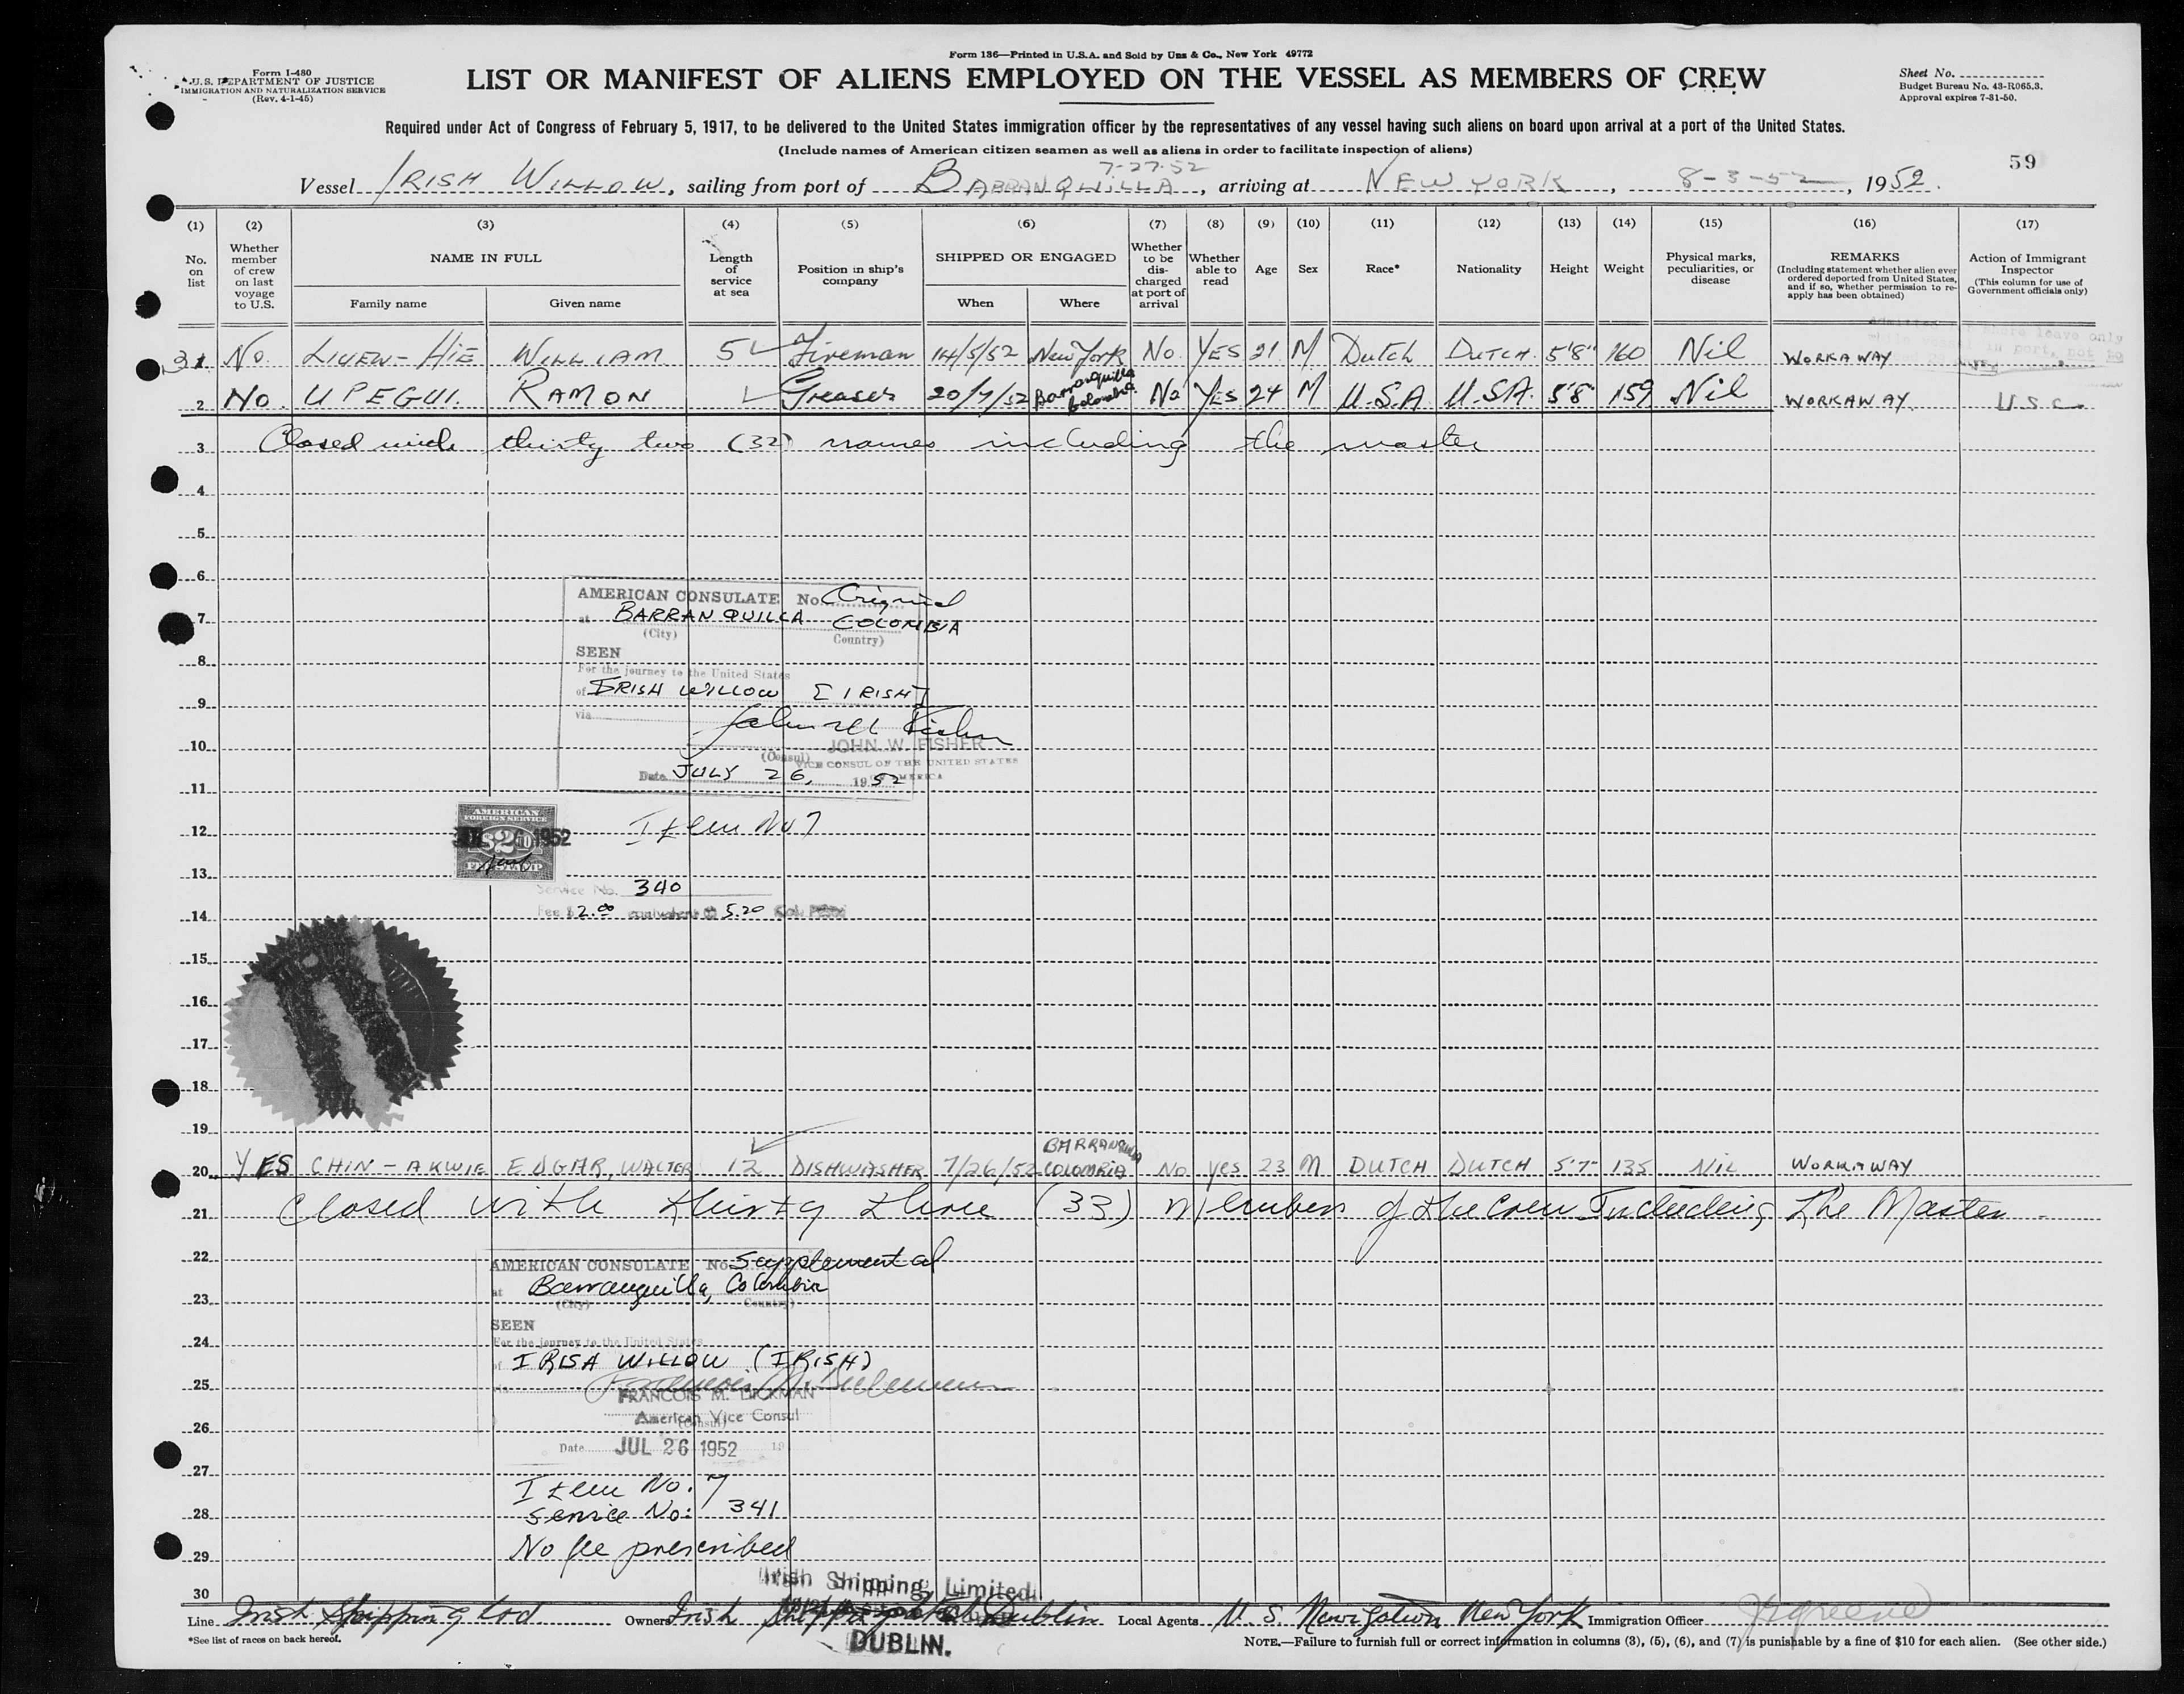 Form 136—Printed in U.S.A. and Sold by Unz & Co., New York 49772
Form I-480
U.S. DEPARTMENT OF JUSTICE
IMMIGRATION AND NATURALIZATION SERVICE
(Rev. 4-1-45)
LIST OR MANIFEST OF ALIENS EMPLOYED ON THE VESSEL AS MEMBERS OF CREW
Sheet No.
Budget Bureau No. 43-R065.3.
Approval expires 7-31-50.
Required under Act of Congress of February 5, 1917, to be delivered to the United States immigration officer by the representatives of any vessel having such aliens on board upon arrival at a port of the United States.
(Include names of American citizen seamen as well as aliens in order to facilitate inspection of aliens)
59
7-27-52
Vessel IRISH WILLOW, sailing from port of BARRANQUILLA, arriving at NEW YORK, 8-3-52, 1952.
(1) (2) (3) (4) (5) (6) (7) (8) (9) (10) (11) (12) (13) (14) (15) (16) (17)
No. on list
Whether member of crew on last voyage to U.S.
NAME IN FULL
Family name
Given name
Length of service at sea
Position in ship's company
SHIPPED OR ENGAGED
When
Where
Whether to be discharged at port of arrival
Whether able to read
Age
Sex
Race*
Nationality
Height
Weight
Physical marks, peculiarities, or disease
REMARKS
(Including statement whether alien ever ordered deported from United States, and if so, whether permission to reapply has been obtained)
Action of Immigrant Inspector
(This column for use of Government officials only)
31 No. LIUEW-HIE WILLIAM 5 Fireman 14/5/52 New York No. YES 21 M Dutch DUTCH. 5'8" 160 Nil WORKAWAY
shore leave only
in port, not to
2 No. UPEGUI. RAMON Greaser 20/7/52 Barranquilla Colombia. No YES 24 M U.S.A U.S.A. 5'8" 159 Nil WORKAWAY. U.S.C.
3 Closed with thirty two (32) names including the master
4
5
6
AMERICAN CONSULATE No. Original
7
at BARRANQUILLA COLOMBIA
(City) (Country)
SEEN
8
For the journey to the United States
of IRISH WILLOW [IRISH]
9
via
10
JOHN W. FISHER
(Consul) VICE CONSUL OF THE UNITED STATES OF AMERICA
Date JULY 26, 1952
11
AMERICAN FOREIGN SERVICE
$2.00
FEE STAMP
1952
Item No 7
12
13
Service No. 340
Fee $2.00 equivalent 5.20 Col.
14
15
16
17
18
19
20 YES CHIN-AKWIE EDGAR, WALTER 12 DISHWASHER 7/26/52 BARRANQUILLA COLOMBIA No yes 23 M DUTCH DUTCH 5'7" 135 NIL WORKAWAY
21 Closed with thirty three (33) members of the crew Including the Master
22
AMERICAN CONSULATE No. Supplemental
at Barranquilla, Colombia
23
(City) (Country)
SEEN
24
For the journey to the United States
of IRISH WILLOW (IRISH)
25
FRANCOIS M. DICKMAN
American Vice Consul
(Consul)
26
Date JUL 26 1952 19
27
Item No. 7
28
Service No: 341
No fee prescribed
29
Irish Shipping Limited
30
Line Irish Shipping Ltd Owners Irish Shipping Ltd Dublin Local Agents U.S. Navigation New York Immigration Officer
DUBLIN.
*See list of races on back hereof.
NOTE.—Failure to furnish full or correct information in columns (3), (5), (6), and (7) is punishable by a fine of $10 for each alien. (See other side.)